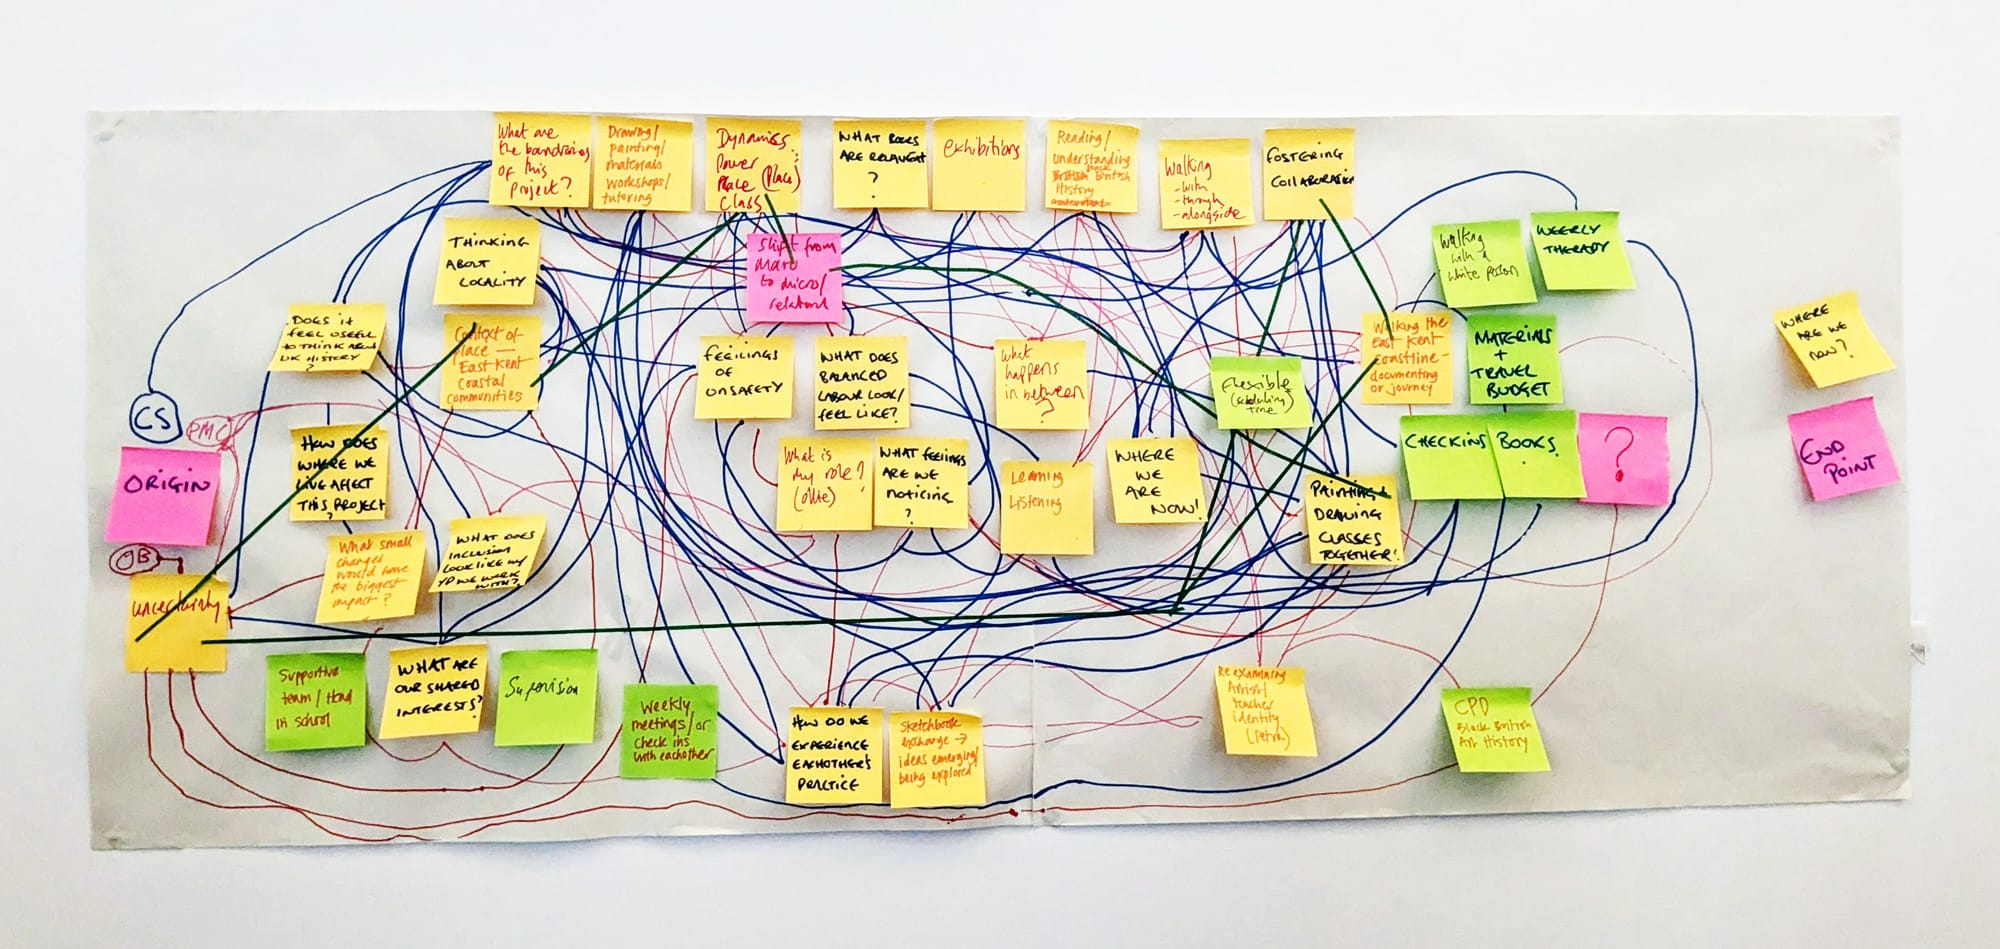 What are
the boundries
of this
project?
Drawing/
painting/
materials
workshops/
tutoring
Dynamics:
Power
Place (Place)
Class
WHAT BOOKS
ARE RELAVENT
?
exhibitions
Reading/
understanding
Black
British British
History
Walking
- with
- through
- alongside
FOSTERING
COLLABORATION
THINKING
ABOUT
LOCALITY
Shift from
macro
to micro/
relational
Walking
with a
white person
WEEKLY
THERAPY
DOES it
FEEL USEFUL
TO THINK ABOUT
UK HISTORY
?
Context of
place —
East Kent
Coastal
communities
FEELINGS
OF
UNSAFETY
WHAT DOES
BALANCED
LABOUR LOOK/
FEEL LIKE?
What
happens
in between
?
Flexible
(scheduling)
time
Walking the
East Kent
coastline -
documenting
our journey
MATERIALS
+
TRAVEL
BUDGET
WHERE
ARE WE
NOW?
CS
PMC
ORIGIN
HOW DOES
WHERE WE
LIVE AFFECT
THIS PROJECT
?
What is
my role?
(Ollie)
WHAT FEELINGS
ARE WE
NOTICING
?
Learning
Listening
WHERE
WE
ARE
NOW!
PAINTING +
DRAWING
CLASSES
TOGETHER!
CHECKINS
BOOKS
?
END
POINT
OB
uncertainty
What small
changes would have
the biggest
impact?
WHAT DOES
INCLUSION
LOOK LIKE
YP WE WORK
WITH?
Supportive
team / Head
in school
WHAT ARE
OUR SHARED
INTERESTS?
Supervision
Weekly
meetings/or
check ins
with eachother
HOW DO WE
EXPERIENCE
EACHOTHER'S
PRACTICE
Sketchbook
exchange →
ideas emerging/
being explored
Re examining
Artist/
teacher
identity
(Petra)
CPD
Black British
Art History